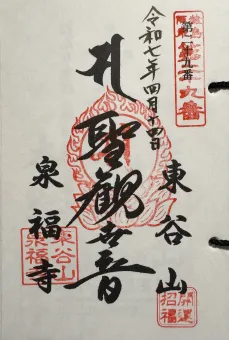 第二十九番
令和七年四月十四日
東谷山
札聖観世音
泉福寺
開運
招福
東谷山
泉福寺